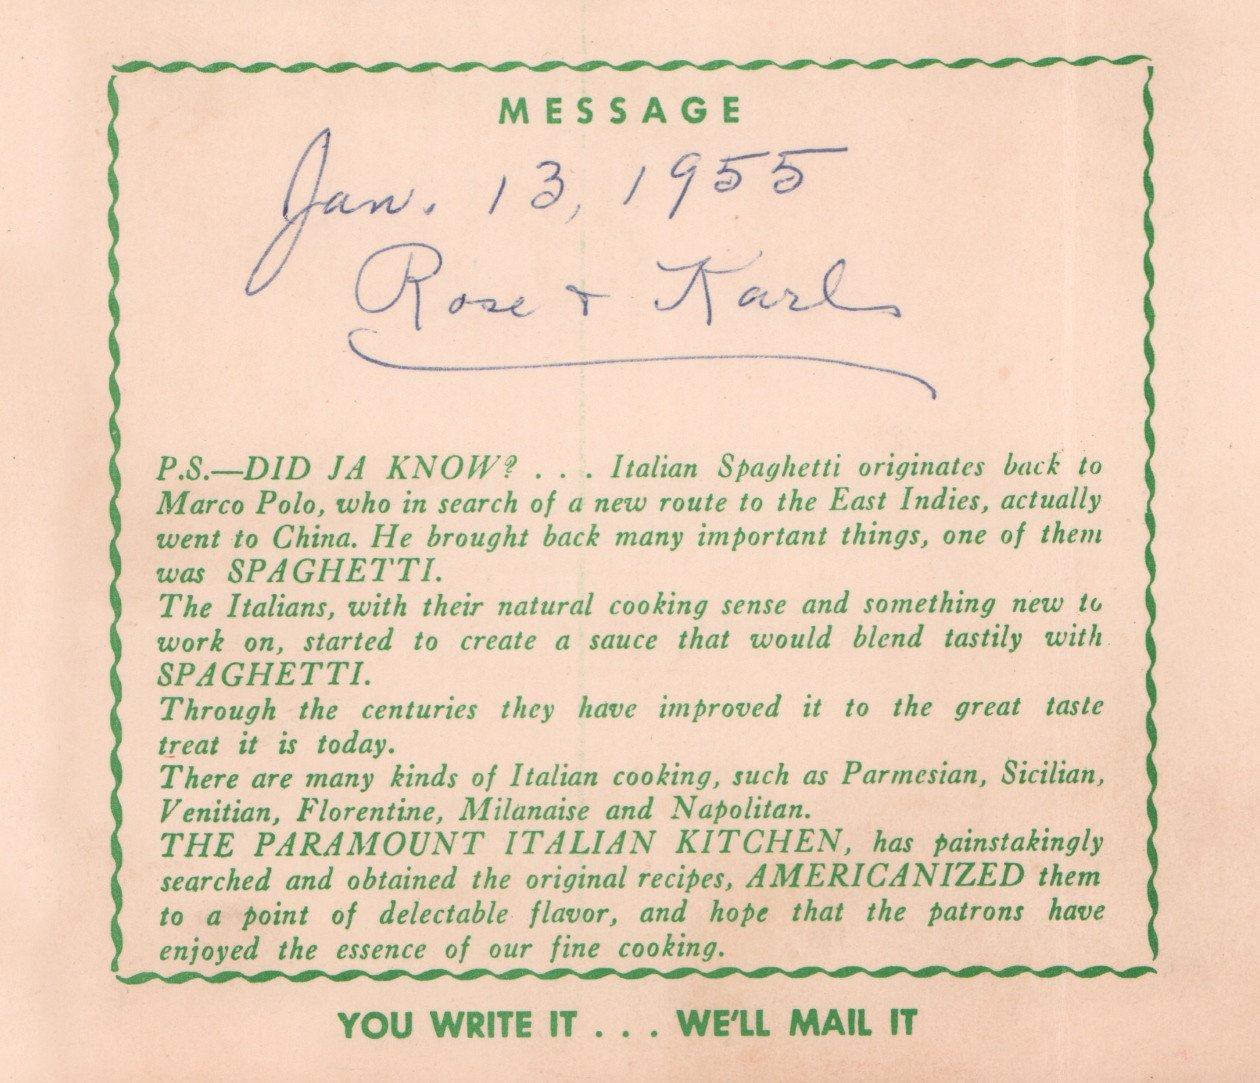 MESSAGE
Jan. 13, 1955
Rose + Karl
P.S.—DID JA KNOW? . . . Italian Spaghetti originates back to
Marco Polo, who in search of a new route to the East Indies, actually
went to China. He brought back many important things, one of them
was SPAGHETTI.
The Italians, with their natural cooking sense and something new to
work on, started to create a sauce that would blend tastily with
SPAGHETTI.
Through the centuries they have improved it to the great taste
treat it is today.
There are many kinds of Italian cooking, such as Parmesian, Sicilian,
Venitian, Florentine, Milanaise and Napolitan.
THE PARAMOUNT ITALIAN KITCHEN, has painstakingly
searched and obtained the original recipes, AMERICANIZED them
to a point of delectable flavor, and hope that the patrons have
enjoyed the essence of our fine cooking.
YOU WRITE IT . . . WE'LL MAIL IT